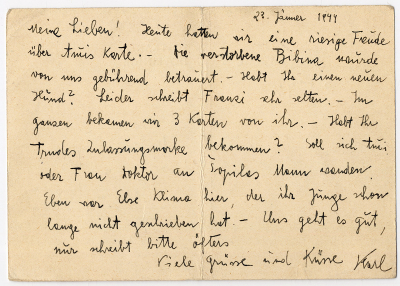 23. Jänner 1944
Meine Lieben! Heute hatten wir eine riesige Freude
über Tuis Karte. - Die verstorbene Bibina wurde
von uns gebührend betrauert. - Habt Ihr einen neuen
Hund? Leider schreibt Franzi sehr selten. - Im
ganzen bekamen wir 3 Karten von ihr. - Habt Ihr
Trudes Zulassungsmarke bekommen? Soll sich Tui
oder Frau Doktor an Mann wenden.
Eben war Else Klima hier, der ihr Junge schon
lange nicht geschrieben hat. - Uns geht es gut,
nur schreibt bitte öfters
Viele Grüsse und Küsse Karl